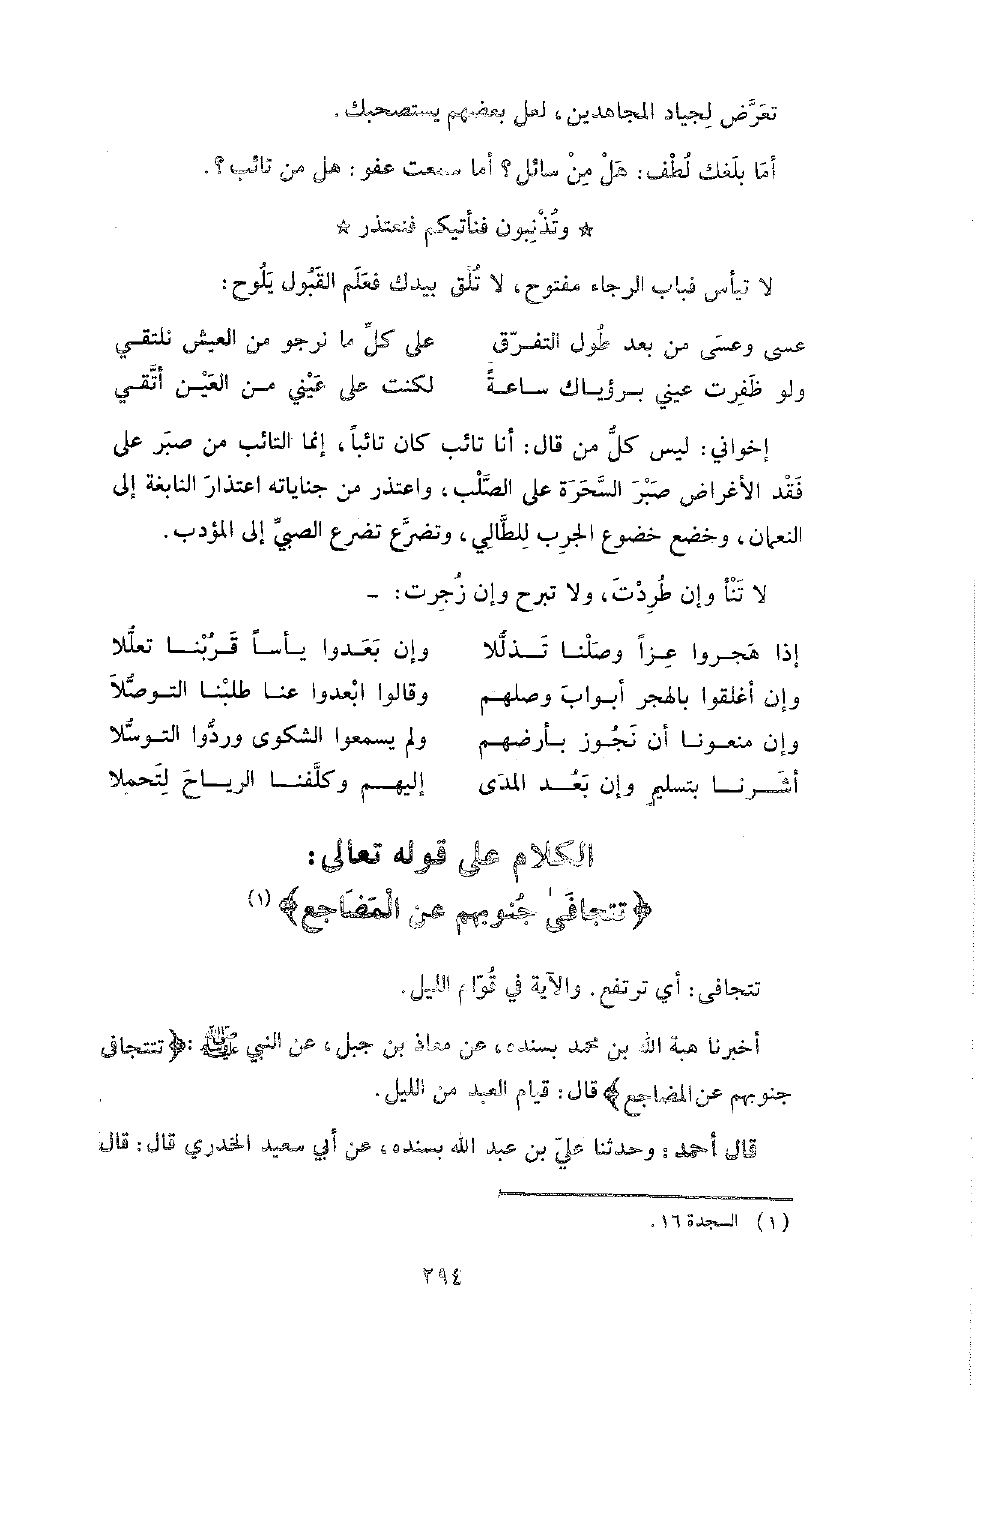 تعَرَّض لِجياد المجاهدين، لعل بعضهم يستصحبك.
أمَا بلَغك لُطْف: هَلْ مِنْ سائل؟ أما سمعت عفو: هل من تائب؟.
☆ وتُذْنِبون فنأتيكم فنعتذر ☆
لا تيأس فباب الرجاء مفتوح، لا تُلْق بيدك فعَلَم القَبُول يَلُوح:
عسى وعسَى من بعد طُول التفـرّق على كلِّ ما نرجو من العيش نلتقـي
ولو ظَفِرت عيني بـرؤيـاك سـاعـةً لكنت على عَيْنِي مـن العَيْـن أتَّقـي
إخواني: ليس كلُّ من قال: أنا تائب كان تائباً، إنما التائب من صبَر على
فَقْد الأغراض صَبْرَ السَّحَرَة على الصَّلْب، واعتذر من جناياته اعتذارَ النابغة إلى
النعمان، وخضع خضوع الجرب لِلطَّالي، وتضرَّع تضرع الصبيِّ إلى المؤدب.
لا تَنْأ وإن طُرِدْتَ، ولا تبرح وإن زُجرت: -
إذا هَجـروا عِـزاً وصَلْنـا تَـذلُّلا وإن بَعَـدوا يـأسـاً قَـرُبْنـا تعلُّلا
وإن أغلقوا بالهجر أبـوابَ وصلهـم وقالوا ابْعدوا عنـا طلبْنـا التـوصُّلاَ
وإن منعـونـا أن نَجُـوز بـأرضهـم ولم يسمعوا الشكوى وردُّوا التـوسُّلا
أشَـرنـا بتسليمٍ وإن بَعُـد المدَى إليهـم وكلَّفنـا الريـاحَ لِتَحملا
الكلام على قوله تعالى:
﴿تتجافَىٰ جُنوبهم عن الْمَضَاجع﴾ (١)
تتجافى: أي ترتفع. والآية في قُوّام الليل.
أخبرنا هبة الله بن محمد بسنده، عن معاذ بن جبل، عن النبي ﷺ: ﴿تتجافى
جنوبهم عن المضاجع﴾ قال: قيام العبد من الليل.
قال أحمد: وحدثنا عليّ بن عبد الله بسنده، عن أبي سعيد الخدري قال: قال
(١) السجدة ١٦.
٢٩٤